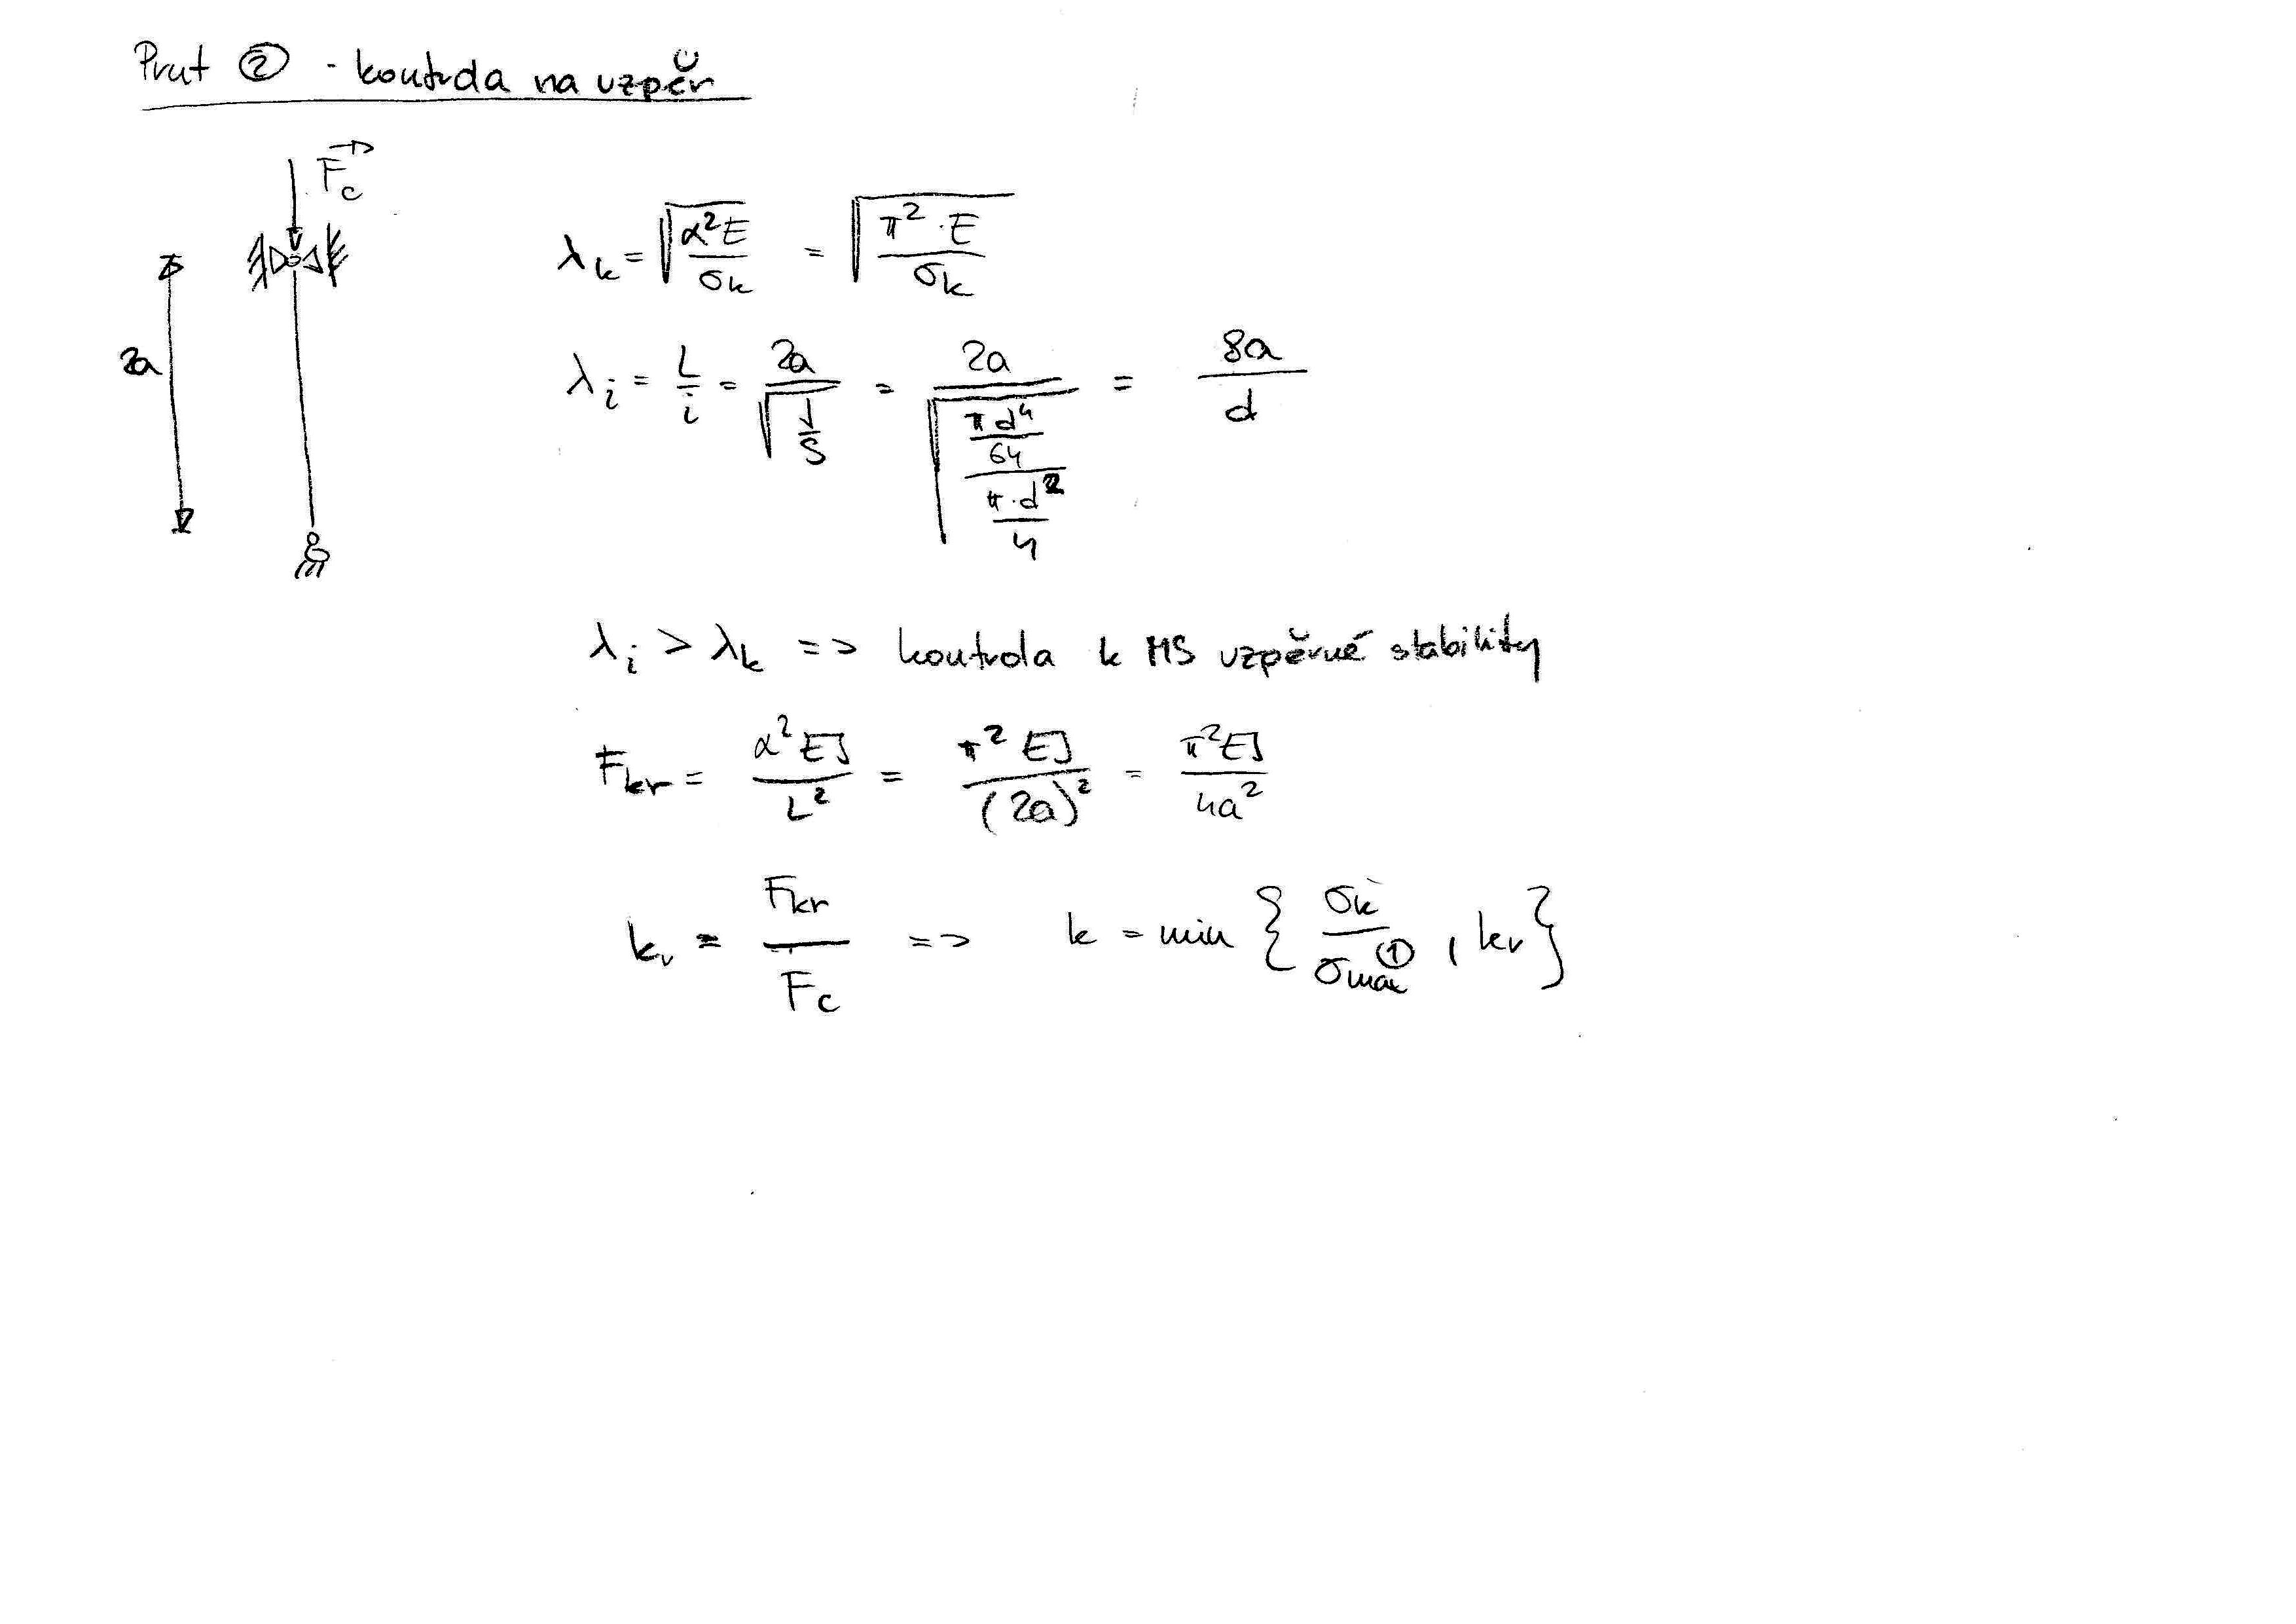 Prut ② - kontrola na vzpěr
F_c
2a
λ_k = √(α²E / σ_k) = √(π² · E / σ_k)
λ_i = L / i = 2a / √(J / S) = 2a / √((πd⁴ / 64) / (π·d² / 4)) = 8a / d
λ_i > λ_k => kontrola k MS vzpěrné stability
F_kr = α²EJ / L² = π²EJ / (2a)² = π²EJ / 4a²
k_v = F_kr / F_c => k = min {σ_k / σ_max^①, k_v}